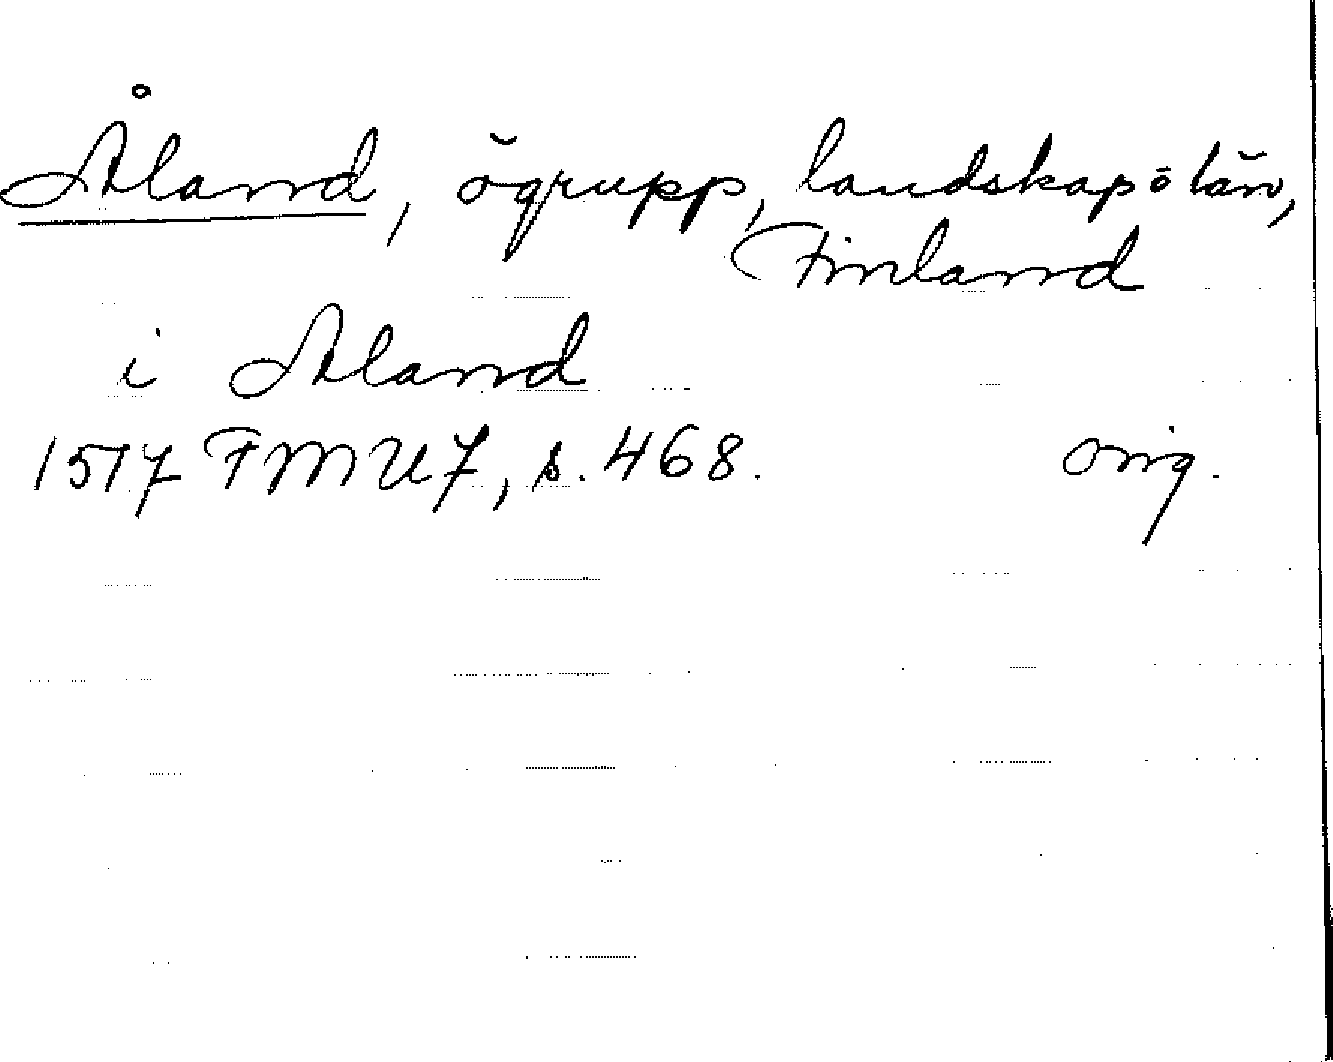 Åland, ögrupp, landskap o län,
Finland
i Aland
1517 FMU 7, s. 468. orig.